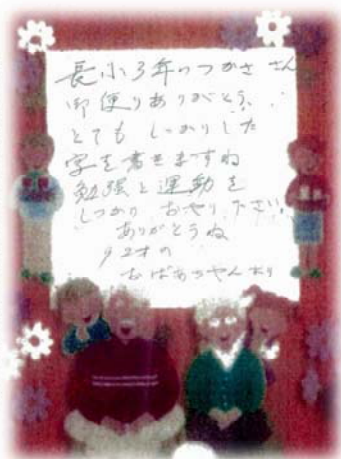 長小3年のつかささん
御便りありがとう、
とても しっかりした
字を書きますね
勉強と運動を
しっかり おやり下さい。
ありがとうね
92才の
おばあちゃんより